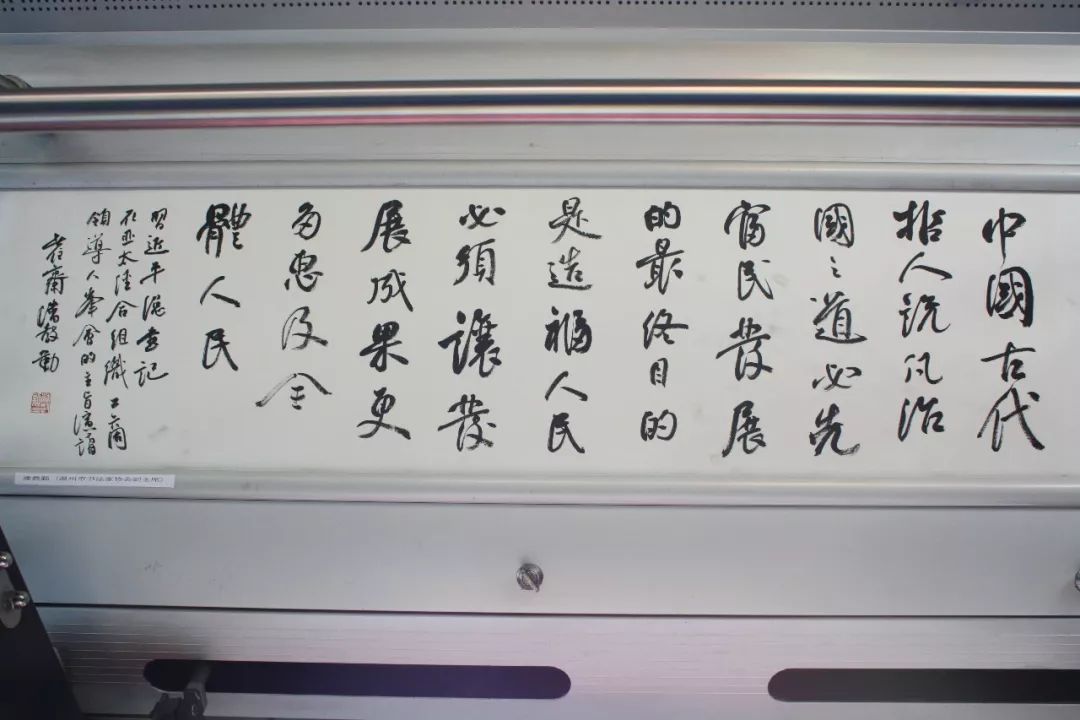 中國古代
哲人説凡治
國之道必先
富民發展
的最終目的
是造福人民
必須讓發
展成果更
多惠及全
體人民
習近平總書記
在亚太經合組織工商
領導人峯會的主旨演講
齋潘教勤
（温州市书法家协会副主席）